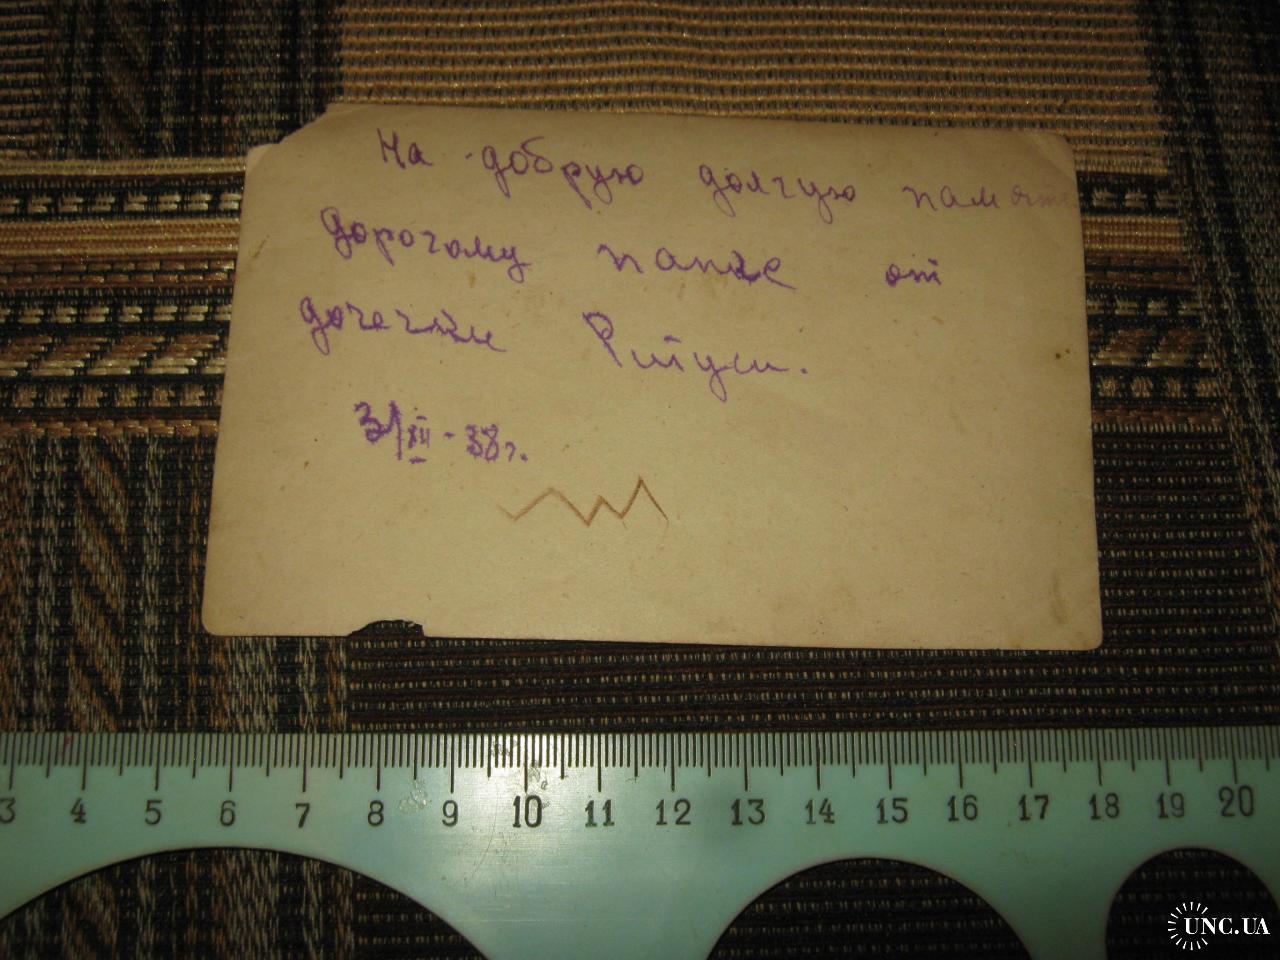 На добрую долгую память
дорогому папке от
дочечки Ритуси.
31/XII - 38 г.
3 4 5 6 7 8 9 10 11 12 13 14 15 16 17 18 19 20
UNC.UA